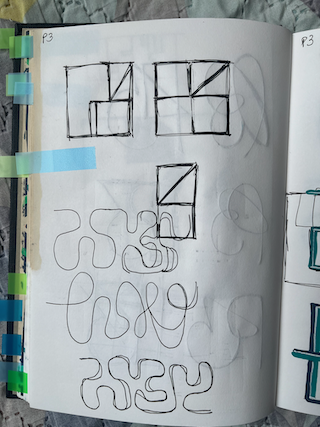 P3
P3